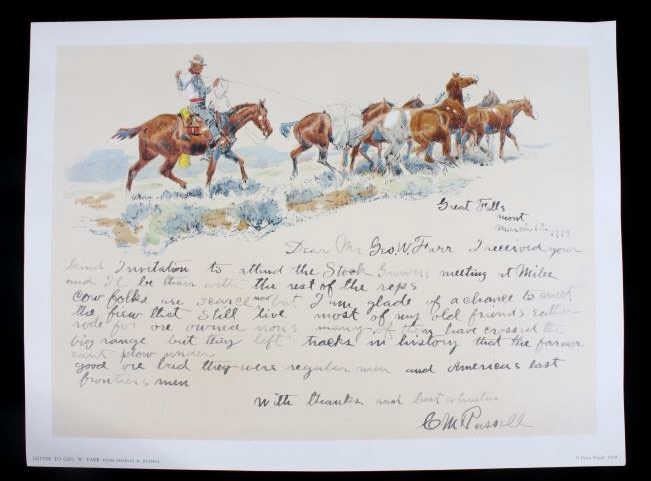 Great Falls
mont
March
Dear Mr Geo. W. Farr I received your
kind Invitation to attend the Stock Growers meeting at Miles
and I'll be thair with the rest of the reps
cow folks are scarce now but I am glade of a chance to meet
the fiew that still live most of my old friends eather
rode for ore owned irons many of them have crossed the
big range but they left tracks in history that the farmer
cant plow under
good ore bad they were regular men and Americas last
frontiers men
With thanks and best whishes
C M Russell
LETTER TO GEO. W. FARR